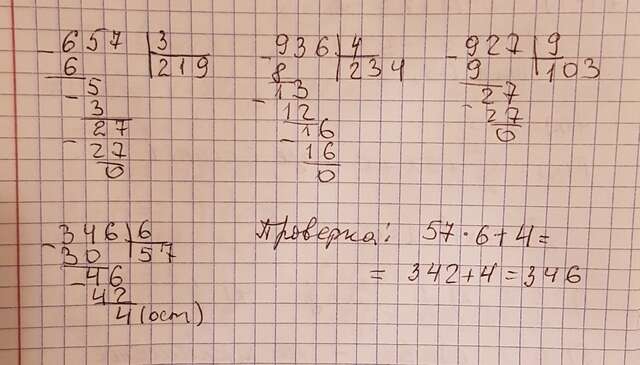 657 | 3
6 | 219
5
3
27
27
0
936 | 4
8 | 234
13
12
16
16
0
927 | 9
9 | 103
27
27
0
346 | 6
30 | 57
46
42
4 (ост)
Проверка: 57 · 6 + 4 =
= 342 + 4 = 346